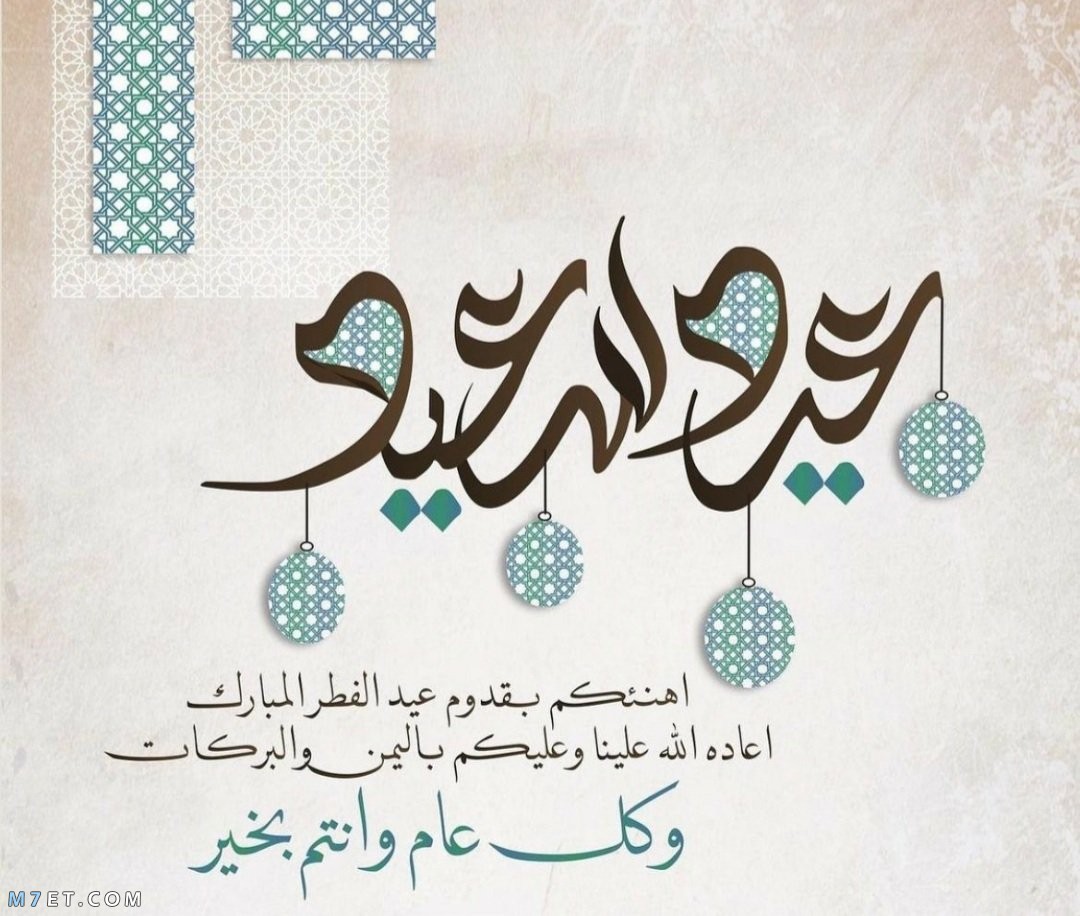 عيدكم سعيد
اهنئكم بقدوم عيد الفطر المبارك
اعاده الله علينا وعليكم باليمن والبركات
وكل عام وانتم بخير
M7ET.COM